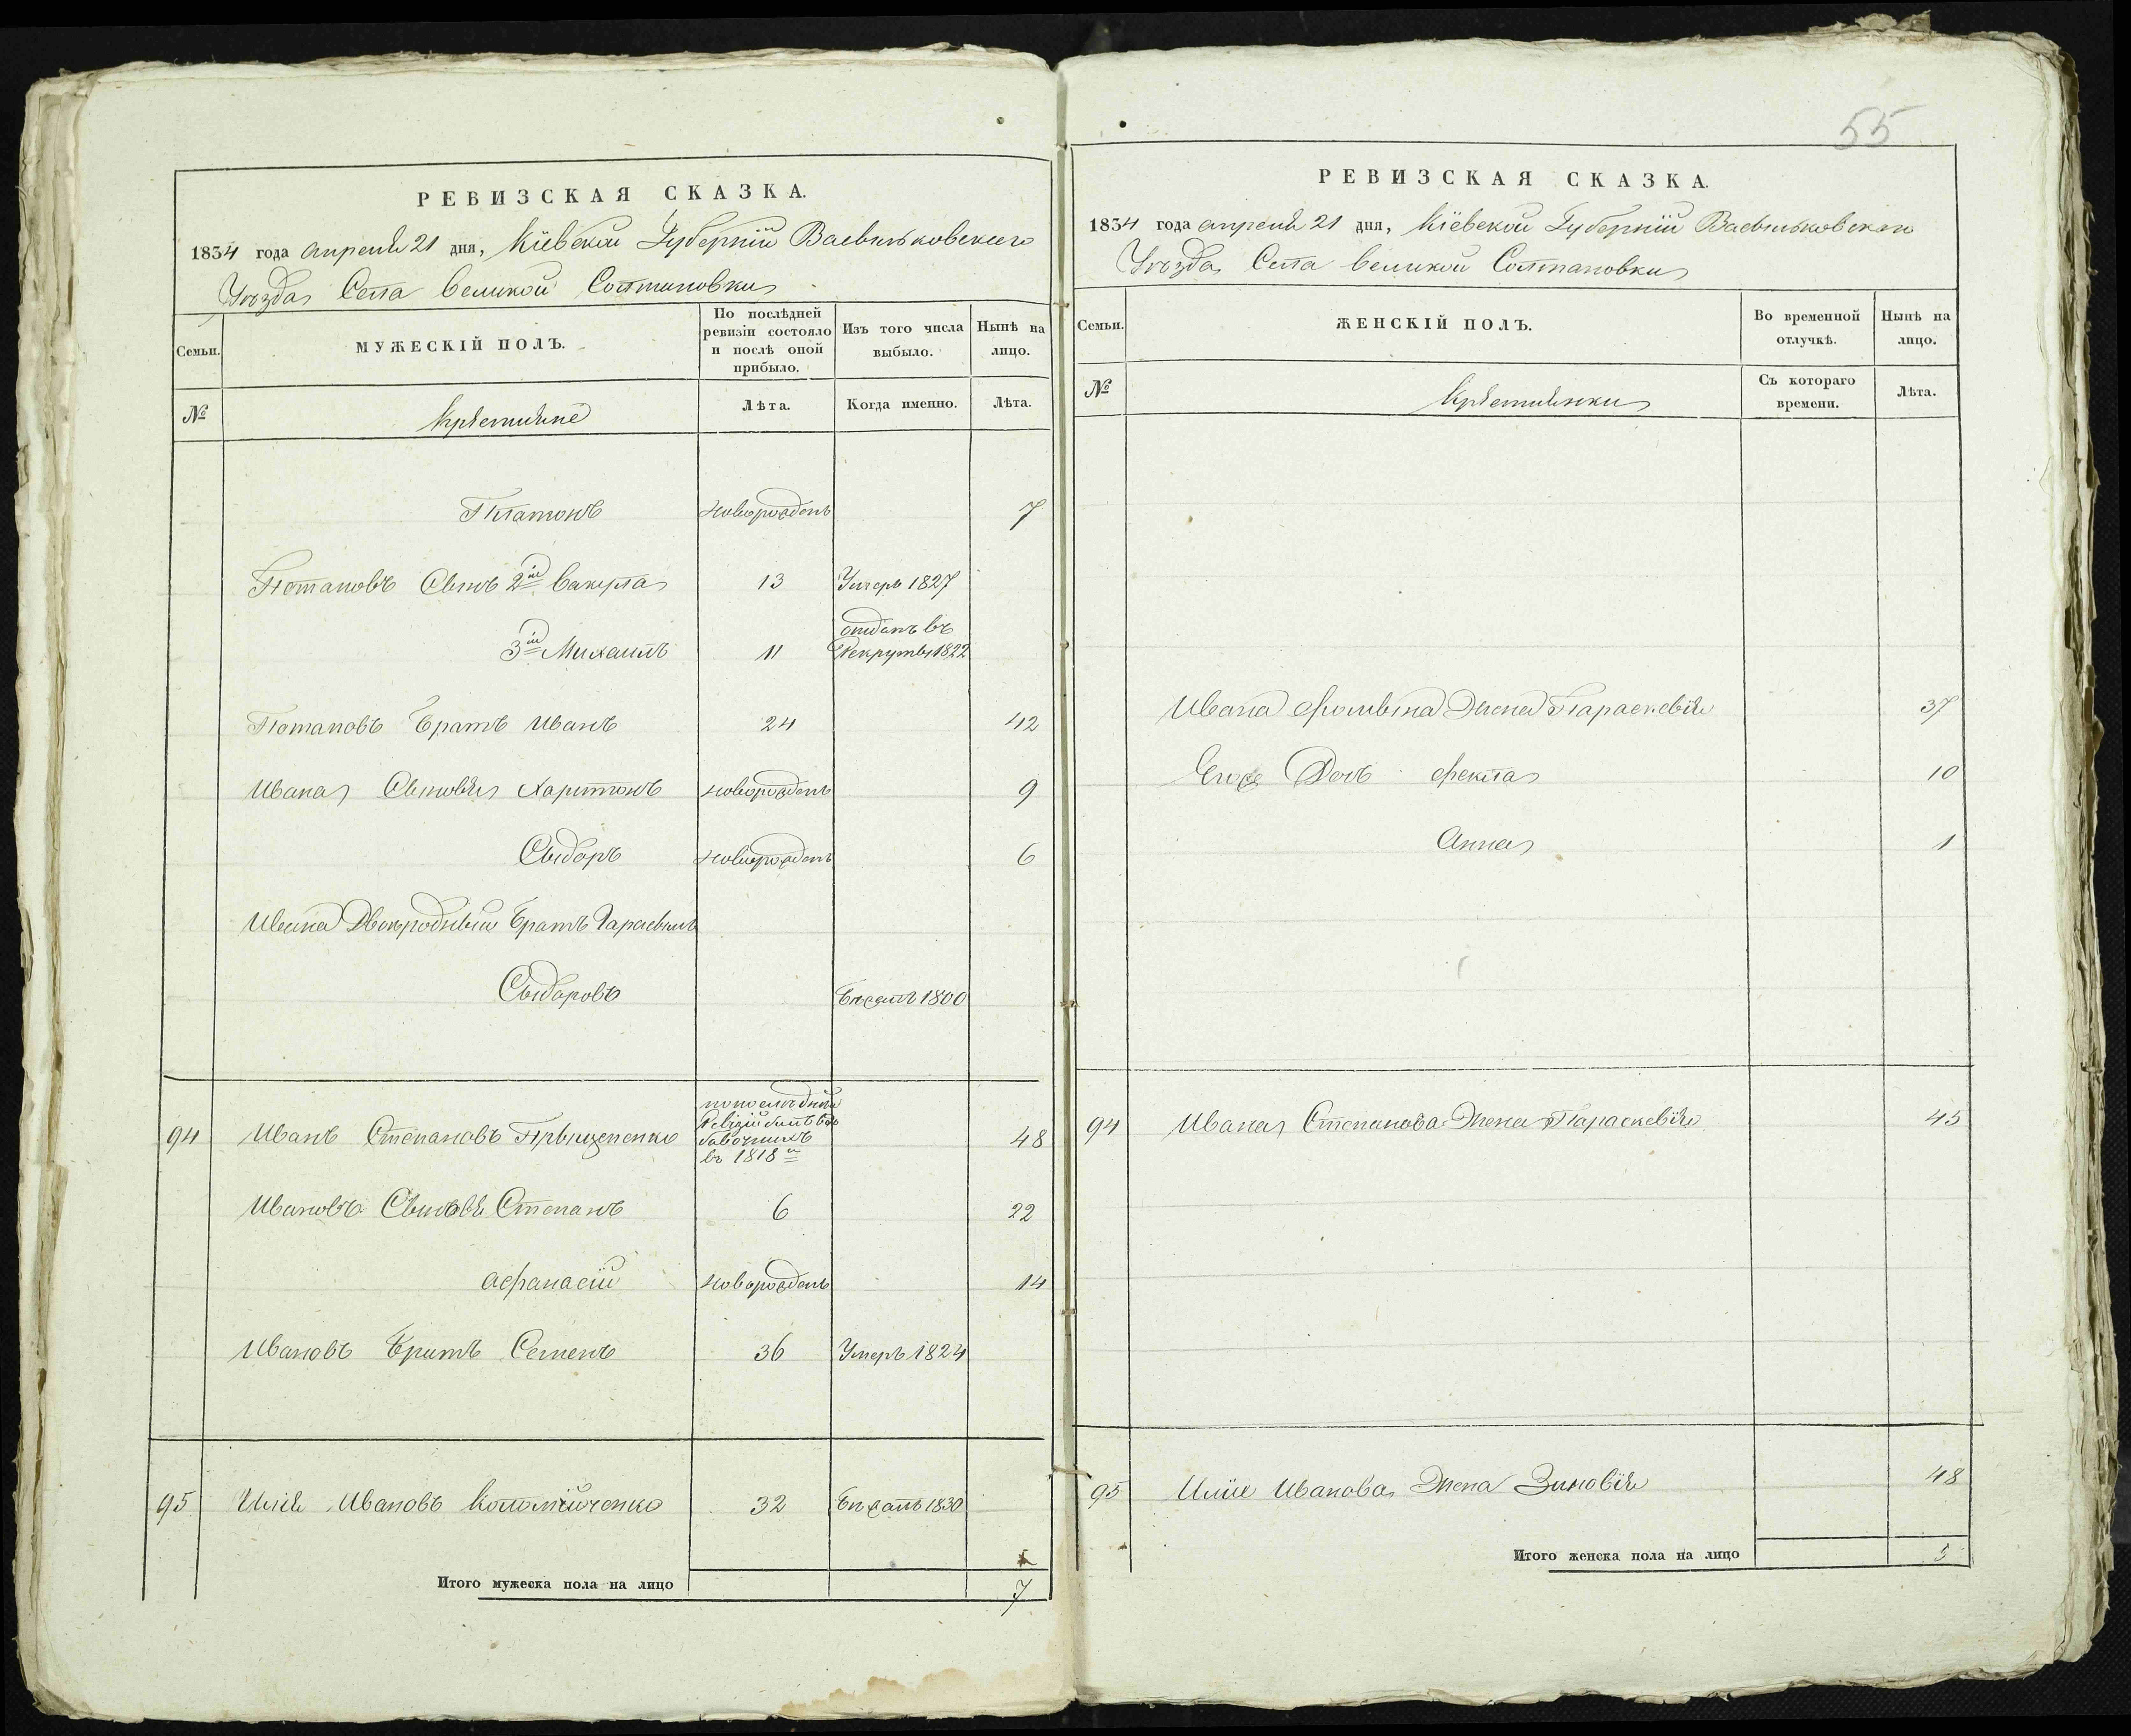 55
РЕВИЗСКАЯ СКАЗКА.
1834 года апреля 21 дня, Кіевской Губерніи Васильковского
Уѣзда Села великой Солтановки
Семьи.
МУЖЕСКІЙ ПОЛЪ.
По послѣдней ревизіи состояло и послѣ оной прибыло.
Изъ того числа выбыло.
Нынѣ на лицо.
№
Крестьяне
Лѣта.
Когда именно.
Лѣта.
Платонъ новорожденъ 7
Потаповъ Сынъ 2й вакула 13 Умеръ 1827
3й Михаилъ 11 отданъ въ Рекруты 1822
Потаповъ братъ Иванъ 24 42
Ивана Сыновья Харитонъ новорожденъ 9
Сыдоръ новорожденъ 6
Ивана Двоюродный братъ Герасимъ
Сыдоровъ бежалъ 1800
94 Иванъ Степановъ Прыщепенко 48
по последней
Ревизіи
въ 1818
Ивановъ Сыновья Степанъ 6 22
Афанасій новорожденъ 14
Ивановъ братъ Семенъ 36 Умеръ 1824
95 Илія Ивановъ Коломійченко 32 бежалъ 1830
Итого мужеска пола на лицо 7
РЕВИЗСКАЯ СКАЗКА.
1834 года апреля 21 дня, Кіевской Губерніи Васильковского
Уѣзда Села великой Солтановки
Семьи.
ЖЕНСКІЙ ПОЛЪ.
Во временной отлучкѣ.
Нынѣ на лицо.
№
Крестьянки
Съ котораго времени.
Лѣта.
Ивана Фомина Жена Параскевія 37
Его Дочь Фекла 10
Анна 1
94 Ивана Степанова Жена Параскевія 45
95 Иліи Иванова Жена Зиновія 48
Итого женска пола на лицо 5